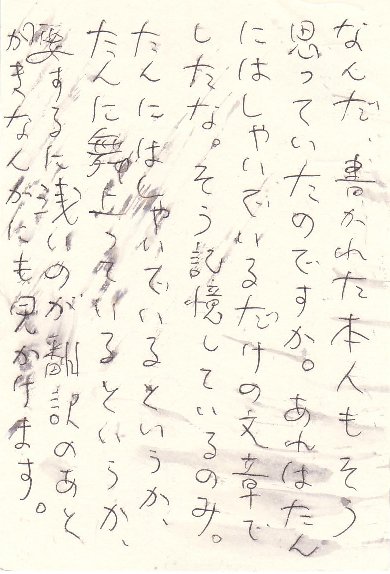 なんだ、書かれた本人もそう
思っていたのですか。あれはたん
にはしゃいでいるだけの文章で
したな。そう記憶しているのみ。
たんにはしゃいでいるというか、
たんに舞上っているというか、
要するに浅いのが翻訳のあと
がきなんかにも見かけます。